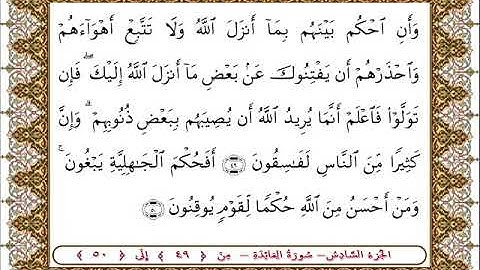 وَأَنِ ٱحْكُم بَيْنَهُم بِمَآ أَنزَلَ ٱللَّهُ وَلَا تَتَّبِعْ أَهْوَآءَهُمْ
وَٱحْذَرْهُمْ أَن يَفْتِنُوكَ عَنۢ بَعْضِ مَآ أَنزَلَ ٱللَّهُ إِلَيْكَ ۖ فَإِن
تَوَلَّوْا۟ فَٱعْلَمْ أَنَّمَا يُرِيدُ ٱللَّهُ أَن يُصِيبَهُم بِبَعْضِ ذُنُوبِهِمْ ۗ وَإِنَّ
كَثِيرًا مِّنَ ٱلنَّاسِ لَفَـٰسِقُونَ ﴿٤٩﴾ أَفَحُكْمَ ٱلْجَـٰهِلِيَّةِ يَبْغُونَ ۚ
وَمَنْ أَحْسَنُ مِنَ ٱللَّهِ حُكْمًا لِّقَوْمٍ يُوقِنُونَ ﴿٥٠﴾
الجزء السادس - سورة المائدة - من ﴿ ٤٩ ﴾ إلى ﴿ ٥٠ ﴾